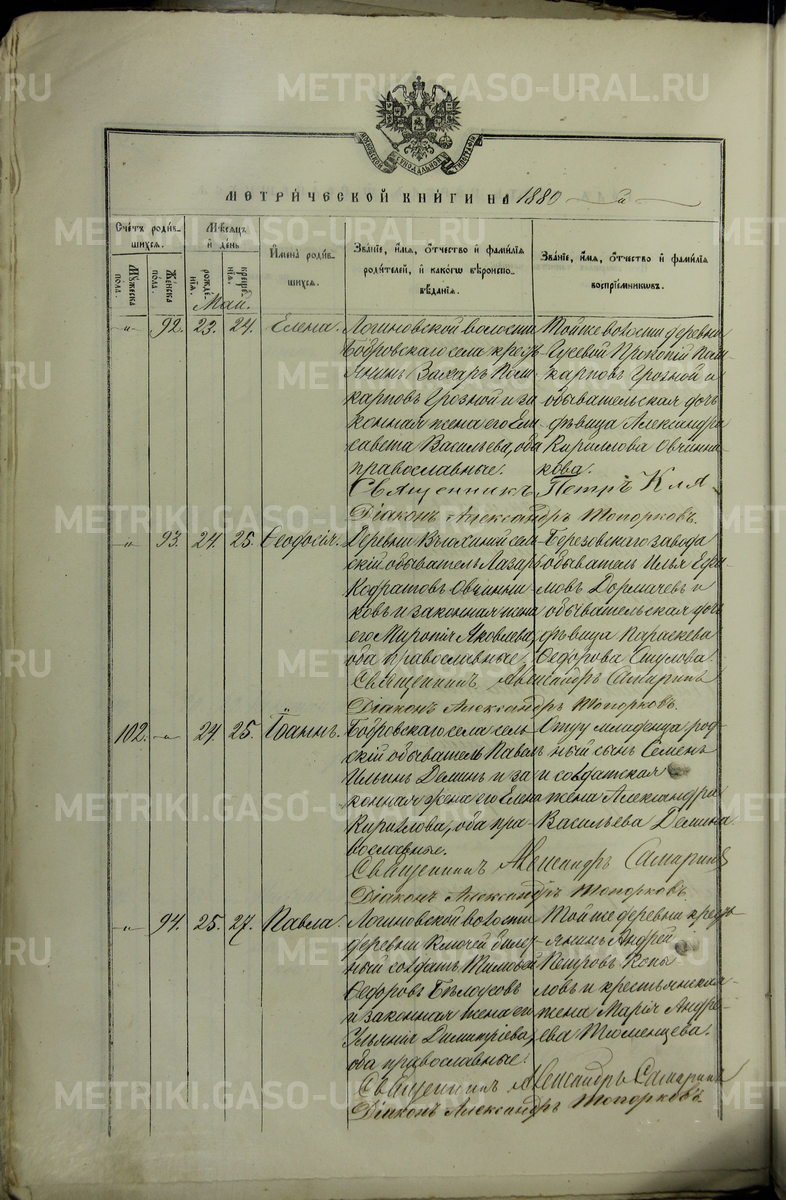 МЕТРИЧЕСКОЙ КНИГИ НА 1880 й
Счетъ родив-
шихся.
Мужеска пола.
Женска пола.
Мѣсяцъ и день
рожде-
нія.
креще-
нія.
Май.
Имена родив-
шихся.
Званіе, имя, отчество и фамилія
родителей, и какого вѣроиспо-
вѣданія.
Званіе, имя, отчество и фамилія
воспріемниковъ.
" 92. 23. 24. Елена.
Логиновской волости
Бобровскаго села кресть
янинъ Захаръ Пол
карповъ Грозной и за
конная жена его Ели
савета Васильева, оба
православные.
Той же волости деревни
Гусевой Прокопій Пол
карповъ Грозной и
обывательская дочь
дѣвица Александра
Кириллова Овчинни
кова.
Священникъ Петръ
Діаконъ Александръ Топорковъ.
" 93. 24. 25. Ѳеодосія.
Деревни Вьюхиной сель
скій обыватель Лазарь
Кодратовъ Овчинни
ковъ и законная жена
его Миропія Яковлева,
оба православные.
Березовскаго завода
обыватель Илья Ефи
мовъ Дормачевъ и
обывательская дочь
дѣвица Параскева
Ѳедорова
Священникъ Александръ Самаринъ
Діаконъ Александръ Топорковъ.
102. " 24. 25. Іоаннъ.
Бобровскаго села сель
скій обыватель Павелъ
Ильинъ Деминъ и за
конная жена его Елена
Кирилова, оба пра-
вославные.
Отцу младенца род
ный сынъ Семенъ
и солдатская
жена Александра
Васильева Демина.
Священникъ Александръ Самаринъ
Діаконъ Александръ Топорковъ
" 94. 25. 27. Павла.
Логиновской волости
деревни Ключей билет
ный солдатъ Тимофей
Ѳедоровъ Бѣлоусовъ
и законная жена его
Ульянія Димитріева,
оба православные.
Той же деревни кресть-
янинъ Андрей
Петровъ Копы
ловъ и крестьянская
жена Марія Андре-
ева Тюменцева.
Священникъ Александръ Самаринъ
Діаконъ Александръ Топорковъ
METRIKI.GASO-URAL.RU